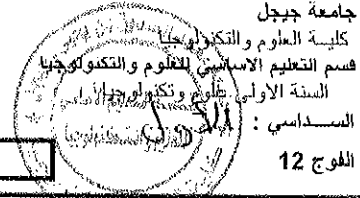 جامعة جيجل
كلية العلوم و التكنولوجيا
قسم التعليم الاساسي للعلوم و التكنولوجيا
السنة الاولى علوم وتكنولوجيا
الســداسي : الأول
الفوج 12